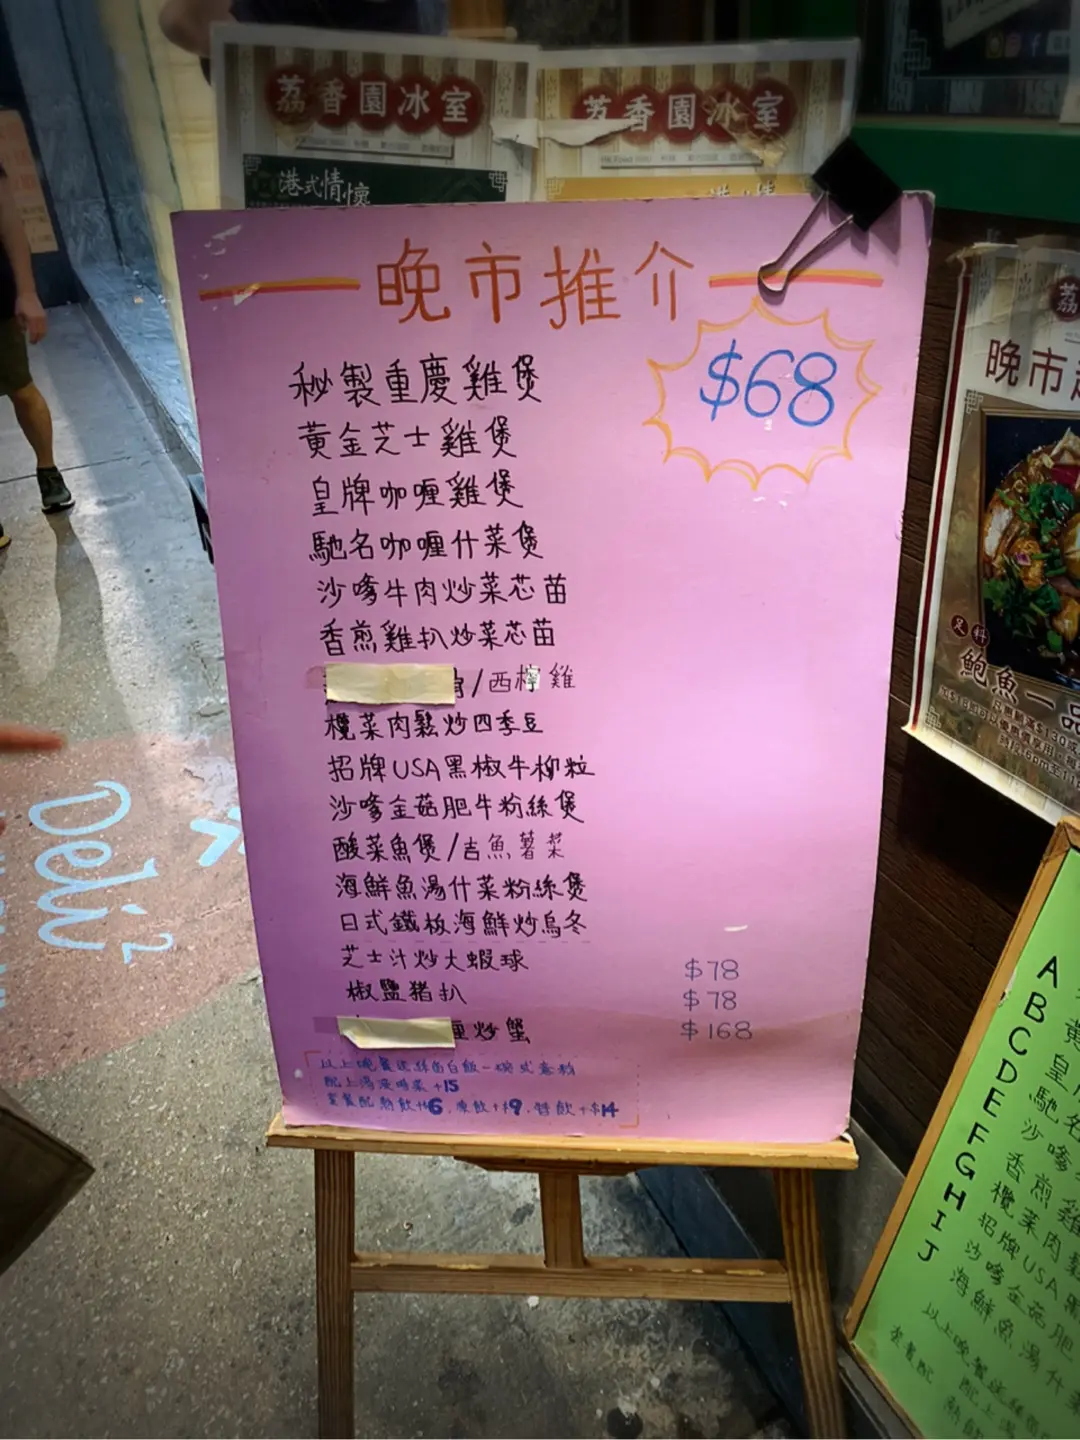 荔香園冰室
荔香園冰室
港式情懷
晚市推介
$68
秘製重慶雞煲
黃金芝士雞煲
皇牌咖喱雞煲
馳名咖喱什菜煲
沙嗲牛肉炒菜芯苗
香煎雞扒炒菜芯苗
/西檸雞
欖菜肉鬆炒四季豆
招牌USA黑椒牛柳粒
沙嗲金菇肥牛粉絲煲
酸菜魚煲/吉魚薯菜
海鮮魚湯什菜粉絲煲
日式鐵板海鮮炒烏冬
芝士汁炒大蝦球 $78
椒鹽豬扒 $78
喱炒蟹 $168
以上晚餐送絲苗白飯一碗或意粉
配上湯浸時菜+15
套餐配熱飲+6.凍飲+$9.特飲+$14
荔
晚市
足料
鮑魚一品
Deli²
A
B 黃
C 皇
D 馳名
E 沙嗲
F 香煎雞
G 欖菜肉鬆
H 招牌USA黑
I 沙嗲金菇肥
J 海鮮魚湯什菜
以上晚餐送絲苗
配上湯
套餐配
熱飲